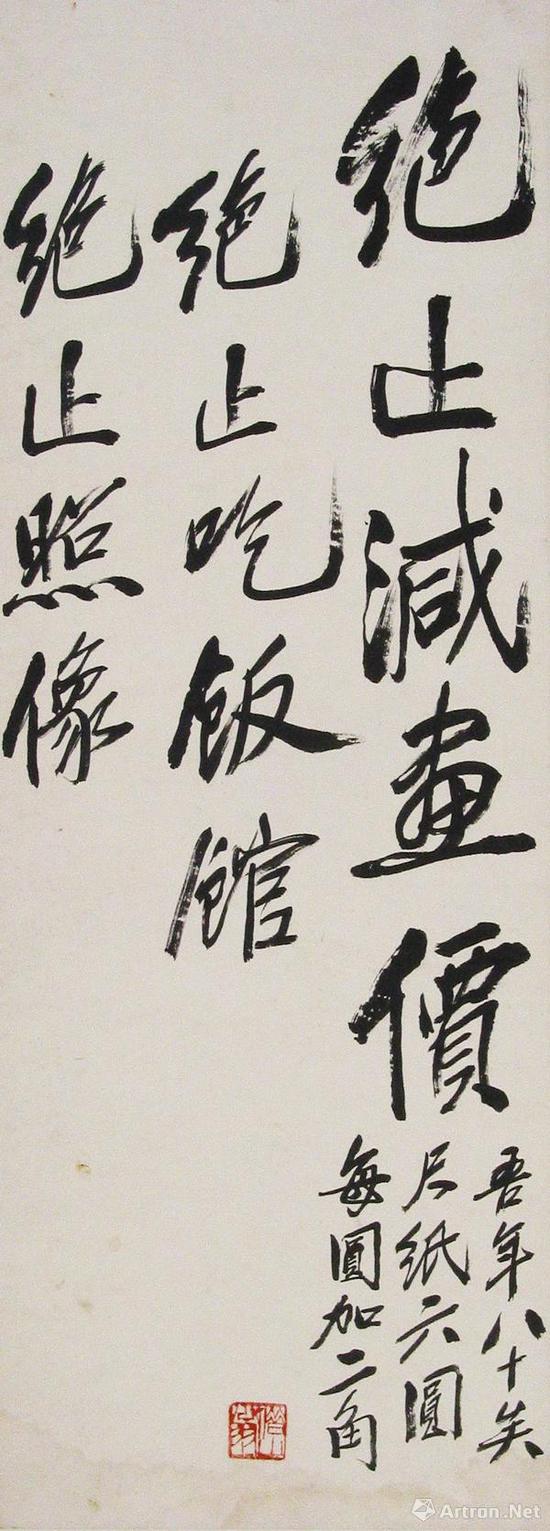 絕止減畫價
吾年八十矣
尺紙六圓
每圓加二角
絕止吃飯館
絕止照像
Artron.Net